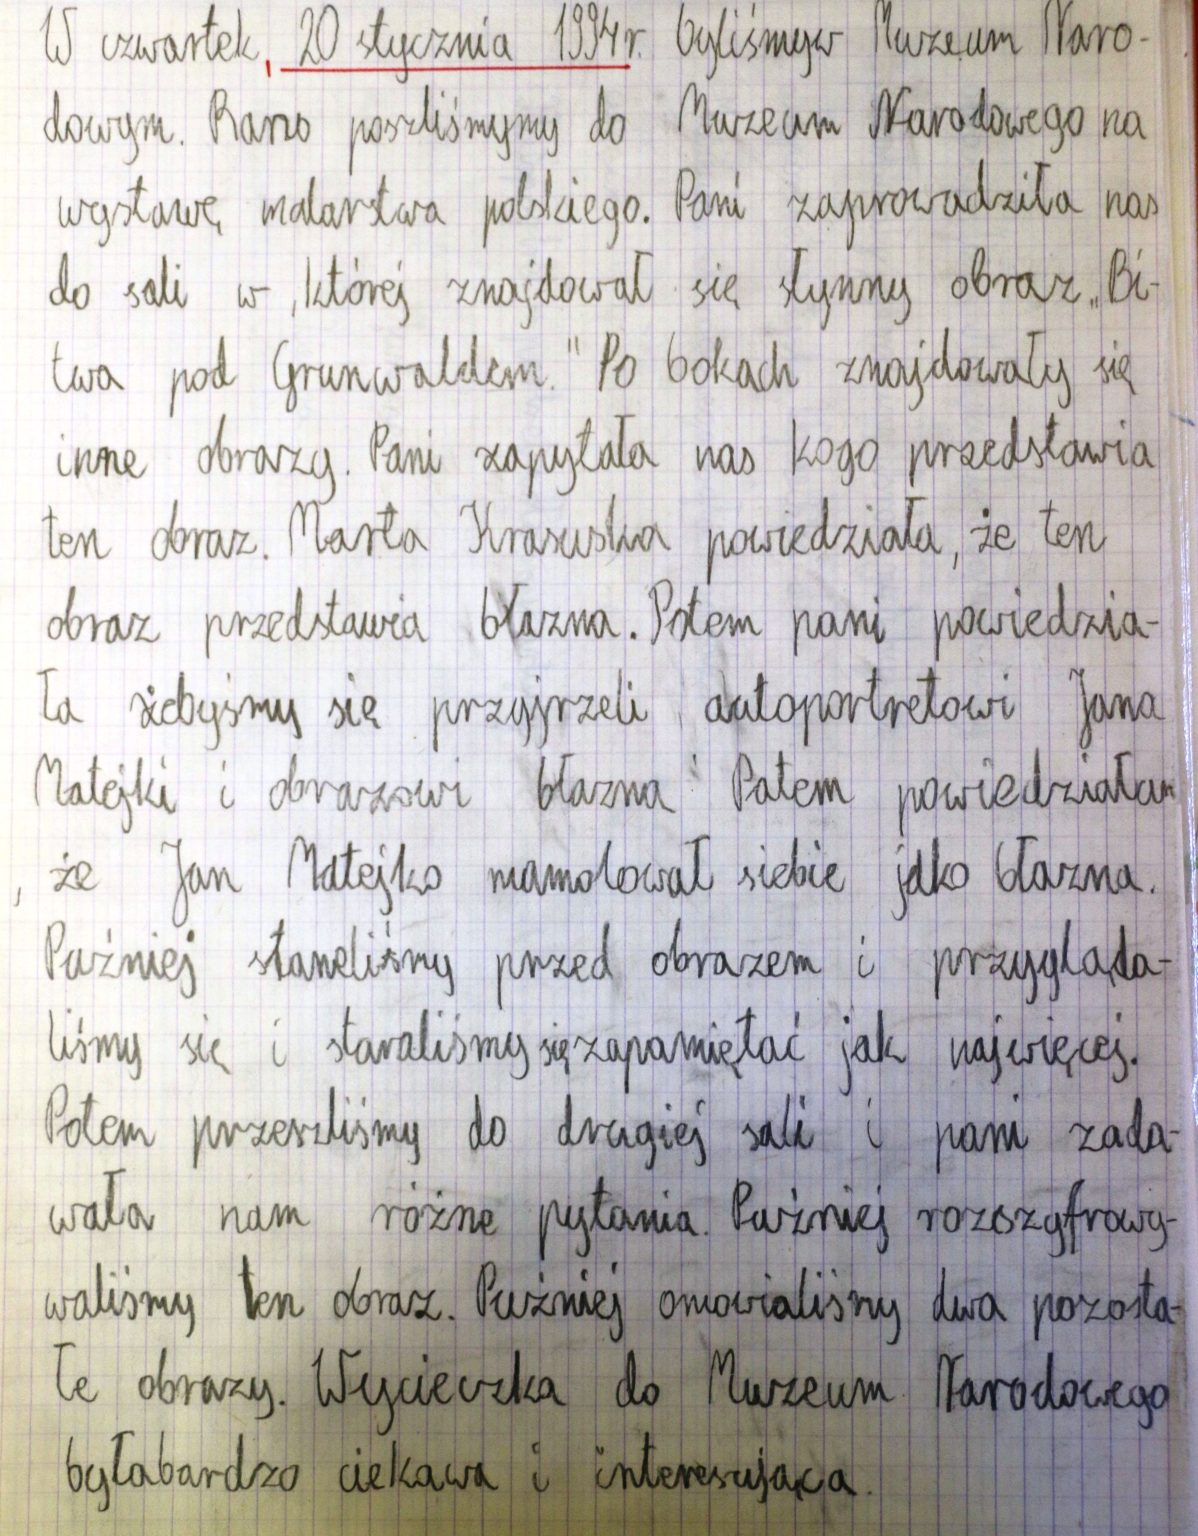 W czwartek, 20 stycznia 1994 r. byliśmy w Muzeum Naro-
dowym. Rano poszliśmymy do Muzeum Narodowego na
wystawę malarstwa polskiego. Pani zaprowadziła nas
do sali w ,której znajdował się słynny obraz „Bi-
twa pod Grunwaldem." Po bokach znajdowały się
inne obrazy. Pani zapytała nas kogo przedstawia
ten obraz. Marta Krasuska powiedziała, że ten
obraz przedstawia błazna. Potem pani powiedzia-
ła żebyśmy się przyjrzeli autoportretowi Jana
Matejki i obrazowi błazna Potem powiedziałam
, że Jan Matejko namolował siebie jako błazna.
Puźniej staneliśmy przed obrazem i przygląda-
liśmy się i staraliśmy się zapamiętać jak najwięcej.
Potem przeszliśmy do drugiej sali i pani zada-
wała nam różne pytania. Puźniej rozszyfrowy-
waliśmy ten obraz. Puźniej omowialiśmy dwa pozosta-
łe obrazy. Wycieczka do Muzeum Narodowego
byłabardzo ciekawa i interesująca.